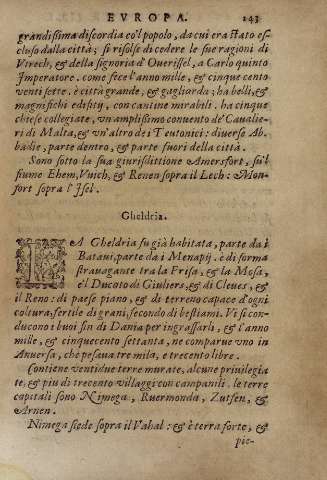 EVROPA. 143
grandissima discordia co'l popolo, da cui era stato es-
cluso dalla città; si risolse di cedere le sue ragioni di
Vtrech, & della signoria d'Ouerissel, a Carlo quinto
Imperatore. come fece l'anno mille, & cinque cento
venti sette. è città grande, & gagliarda; ha belli, &
magnifichi edifitÿ, con cantine mirabili. ha cinque
chiese collegiate, vn amplissimo conuento de' Caualie-
ri di Malta, & vn'altro de i Teutonici: diuerse Ab-
badie, parte dentro, & parte fuori della città.
Sono sotto la sua giurisdittione Amersfort, su'l
fiume Ehem, Vuich, & Renen sopra il Lech: Mon-
fort sopra l'Isel.
Gheldria.
LA Gheldria fu già habitata, parte da i
Bataui, parte da i Menapij. è di forma
strauagante tra la Frisa, & la Mosa,
e'l Ducato di Giuliers, & di Cleues, &
il Reno: di paese piano, & di terreno capace d'ogni
coltura, fertile di grani, secondo di bestiami. Vi si con-
ducono i buoi fin di Dania per ingrassarli, & l'anno
mille, & cinquecento settanta, ne comparue vno in
Anuersa, che pesaua tre mila, e trecento libre.
Contiene ventidue terre murate, alcune priuilegia
te, & piu di trecento villaggi con campanili. le terre
capitali sono Nimega, Ruermonda, Zutfen, &
Arnen.
Nimega siede sopra il Vahal: & è terra forte, &
pie-